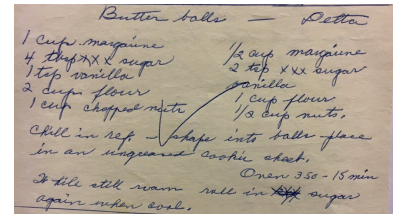 Butter balls — Detta
1 cup margarine
4 tbsp xxx sugar
1 tsp vanilla
2 cups flour
1 cup chopped nuts
1/2 cup margarine
2 tsp xxx sugar
vanilla
1 cup flour
1/2 cup nuts.
Chill in ref. – shape into balls – place
in an ungreased cookie sheet.
Oven 350 – 15 min
still warm roll in sugar
again when cool.